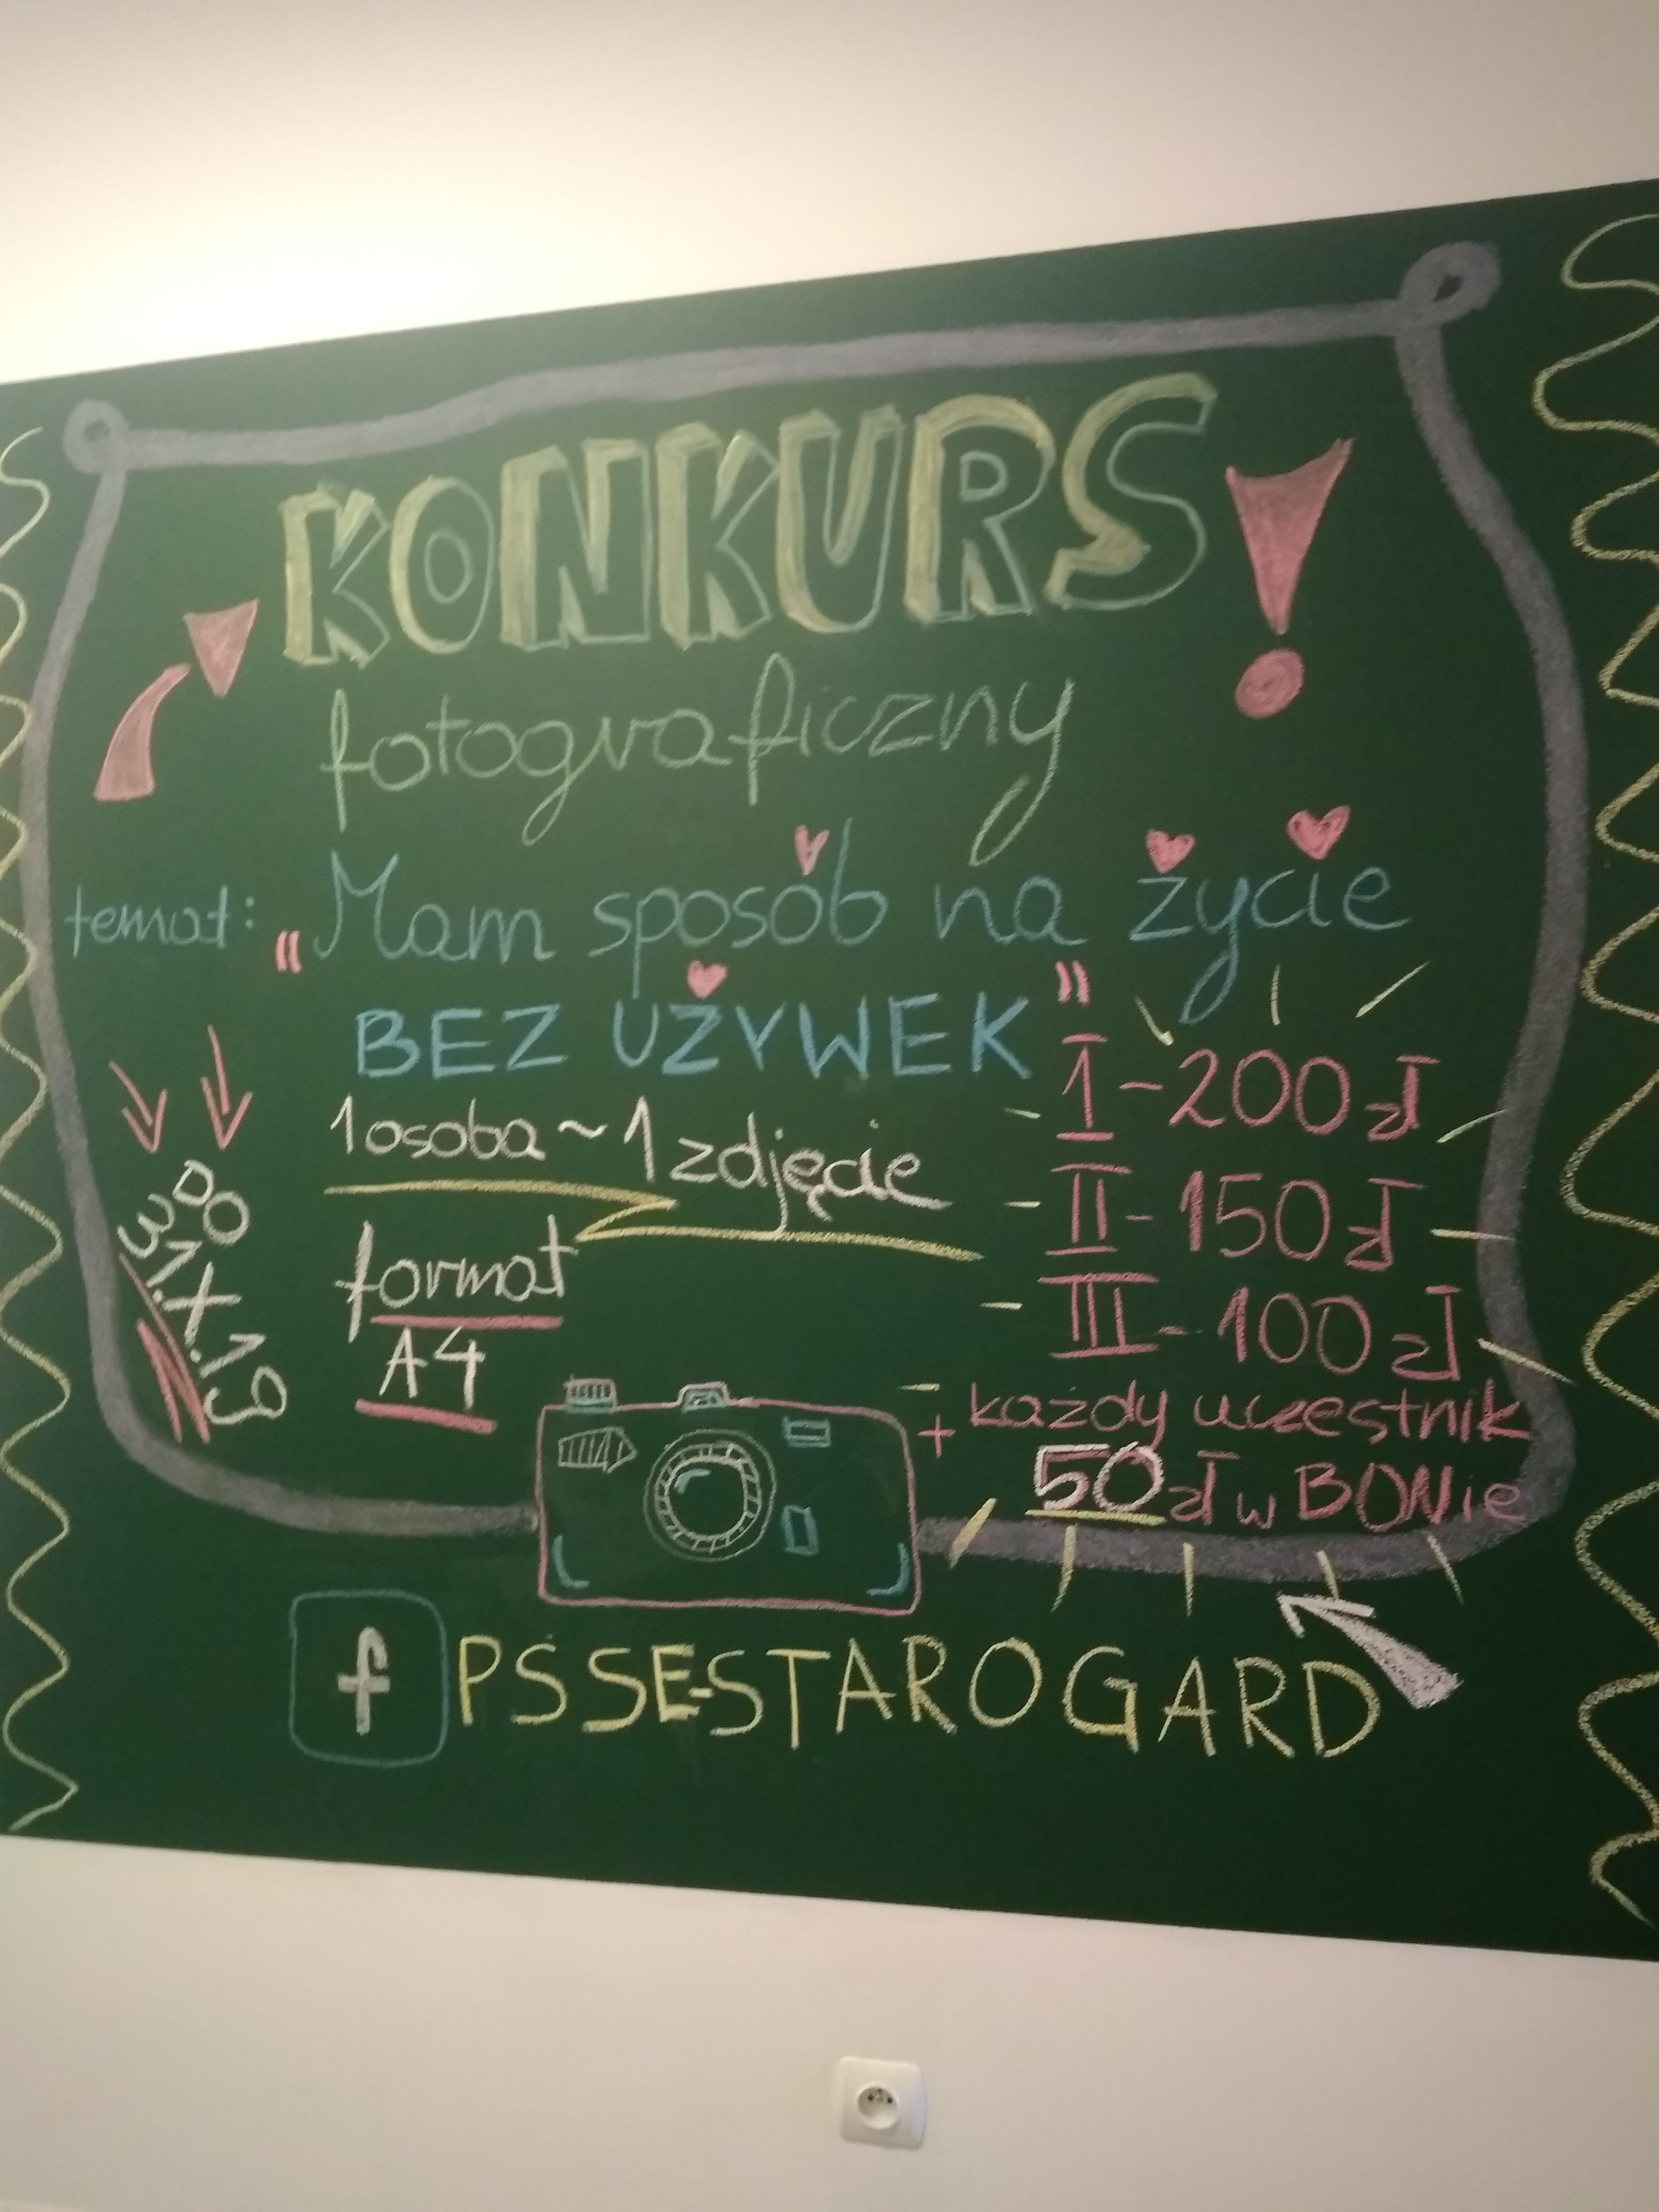 KONKURS!
fotograficzny
temat: „Mam sposób na życie
BEZ UŻYWEK"
1 osoba ~ 1 zdjęcie
format
A4
DO
31.X.19
I - 200 zł
II - 150 zł
III - 100 zł
+ każdy uczestnik
50 zł w BONie
f PSSE-STAROGARD